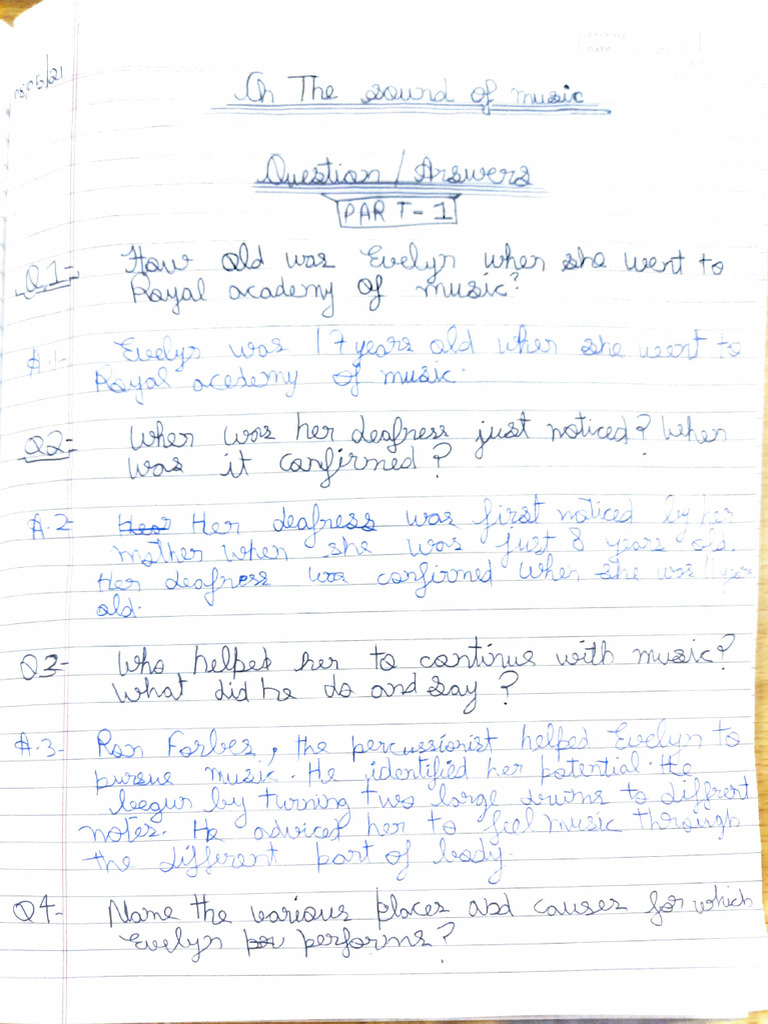 08/05/21
Ch The sound of music
Question / Answers
PART-1
Q1- How old was Evelyn when she went to
Royal academy of music?
A.1- Evelyn was 17 years old when she went to
Royal acedemy of music.
Q2- When was her deafness just noticed? When
was it confirmed?
A.2 Her deafness was first noticed by her
mother when she was just 8 years old.
Her deafness was confirmed when she was 11 year
old.
Q3- Who helped her to continue with music?
What did he do and say?
A.3- Ron Forbes, the percussionist helped Evelyn to
pursue music. He identified her potential. He
begun by turning two large drums to diffrent
notes. He adviced her to feel music through
the different part of body.
Q4- Name the various places and causes for which
Evelyn performs?